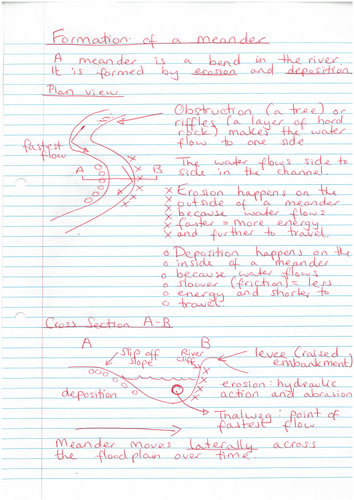 Formation of a meander
A meander is a bend in the river.
It is formed by erosion and deposition.
Plan view
Obstruction (a tree) or
riffles (a layer of hard
rock) makes the water
flow to one side.
fastest
flow
The water flows side to
side in the channel.
A B
x Erosion happens on the
x outside of a meander
x because water flows
x faster = more energy
x and further to travel.
o Deposition happens on the
o inside of a meander
o because water flows
o slower (friction) = less
o energy and shorter to
o travel.
Cross Section A-B
A B
slip off
slope
River
cliff
levee (raised
embankment)
deposition
erosion: hydraulic
action and abrasion
Thalweg: point of
fastest flow
Meander moves laterally across
the floodplain over time.